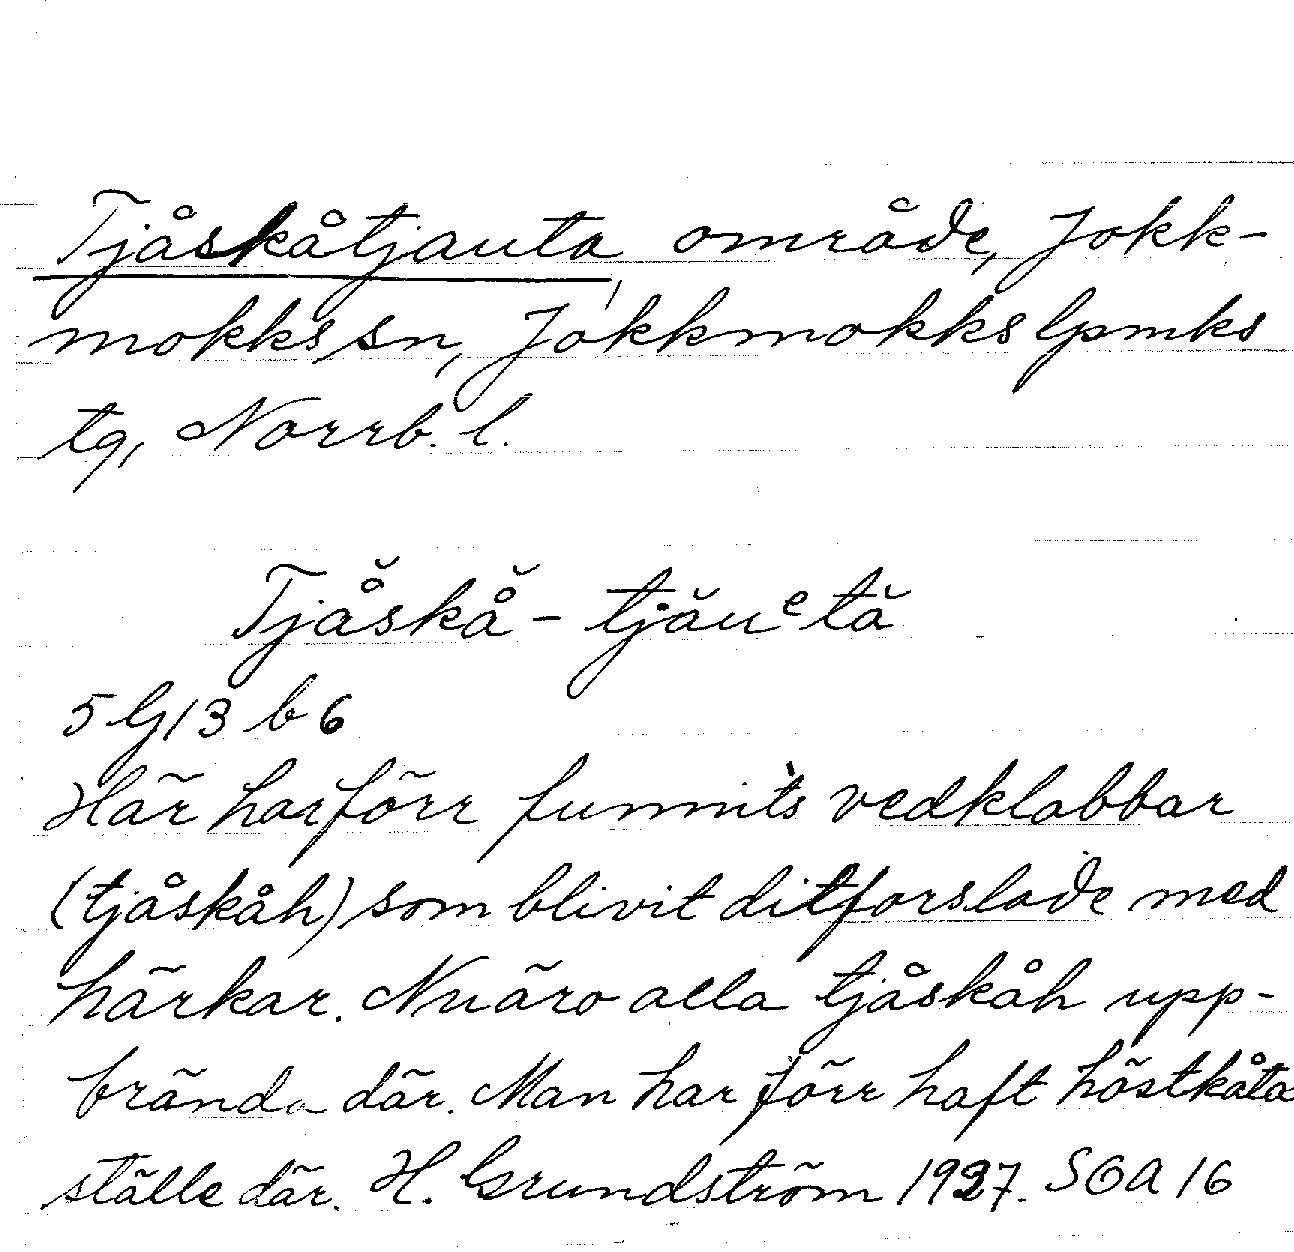 Tjåskåtjauta, område, Jokk-
mokks sn, Jokkmokks lpmks
tg, Norrb. l.
Tjå̆skå̆-tjăuᵉtă
5 G13 b 6
Här har förr funnits vedklabbar
(tjåskåh) som blivit ditforslade med
härkar. Nu äro alla tjåskåh upp-
brända där. Man har förr haft höstkåta
ställe där. H. Grundström 1927. SOA 16